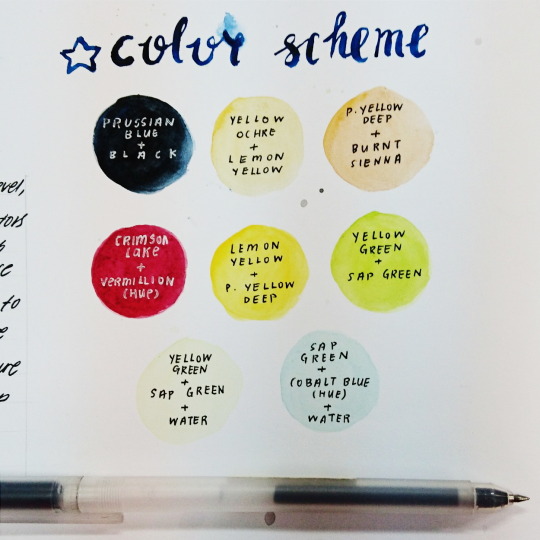 color scheme
PRUSSIAN
BLUE
+
BLACK
YELLOW
OCHRE
+
LEMON
YELLOW
P. YELLOW
DEEP
+
BURNT
SIENNA
CRIMSON
LAKE
+
VERMILLION
(HUE)
LEMON
YELLOW
+
P. YELLOW
DEEP
YELLOW
GREEN
+
SAP GREEN
YELLOW
GREEN
+
SAP GREEN
+
WATER
SAP
GREEN
+
COBALT BLUE
(HUE)
+
WATER
to